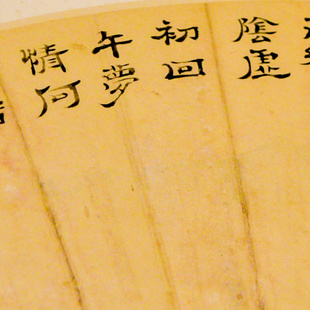 陰虛
初回
午夢
情何